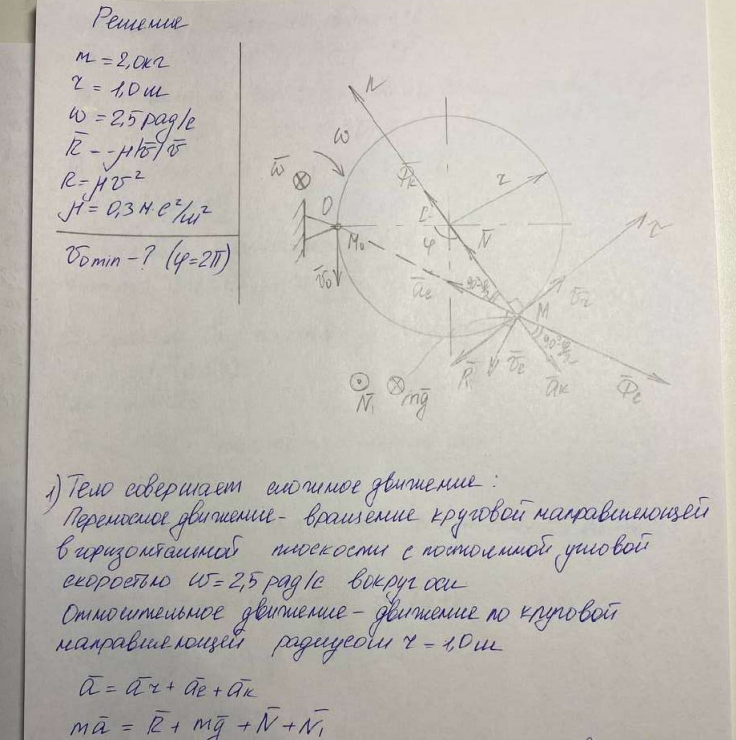 Решение
m = 2,0 кг
r = 1,0 м
ω = 2,5 рад/с
R̄ = -μ|v̄|v̄
R = μv²
μ = 0,3 Н·с²/м²
v₀ min - ? (φ = 2π)
n
ω
ω̄
Φ̄к
r
O
C
M₀
φ
N̄
τ
v̄₀
āe
90°-φ/2
M
v̄r
90°-φ/2
R̄
v̄e
āк
Φ̄e
N̄₁
mḡ
1) Тело совершает сложное движение:
Переносное движение - вращение круговой направляющей
в горизонтальной плоскости с постоянной угловой
скоростью ω = 2,5 рад/с вокруг оси
Относительное движение - движение по круговой
направляющей радиусом r = 1,0 м
ā = ār + āe + āк
mā = R̄ + mḡ + N̄ + N̄₁